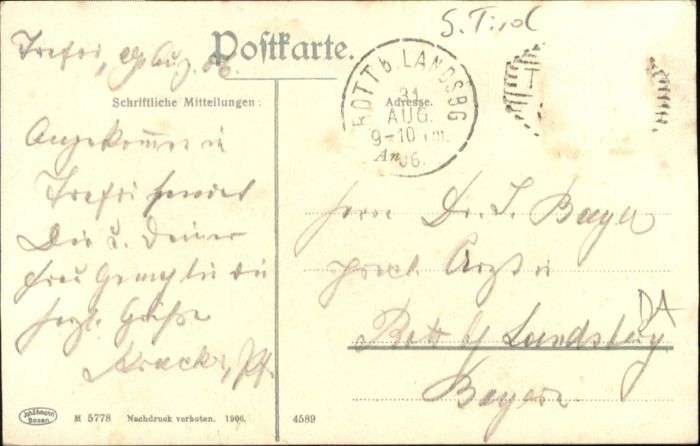 S. Tirol
Trafoi, Aug. 06.
Postkarte.
Schriftliche Mitteilungen:
Adresse.
ROTT b. LANDSBG
31
AUG.
9-10
06.
An
Angekommen in
Trafoi sendet
Dir u. Deiner
Frau Gemahlin die
herzl. Grüße
Herrn Dr. J. Bayer
pract. Arzt in
Rott b/ Landsberg
DA
Bayern
M 5778 Nachdruck verboten. 1906. 4589